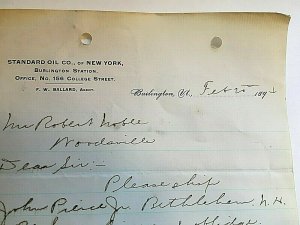 STANDARD OIL CO., OF NEW YORK,
BURLINGTON STATION.
OFFICE, No. 156 COLLEGE STREET.
F. W. BALLARD, AGENT.
Burlington, Vt., Feb 25 189
Mr Robert Noble
Woodsville
Dear Sir:-
Please ship
John Pierce Jr. Bethlehem N.H.